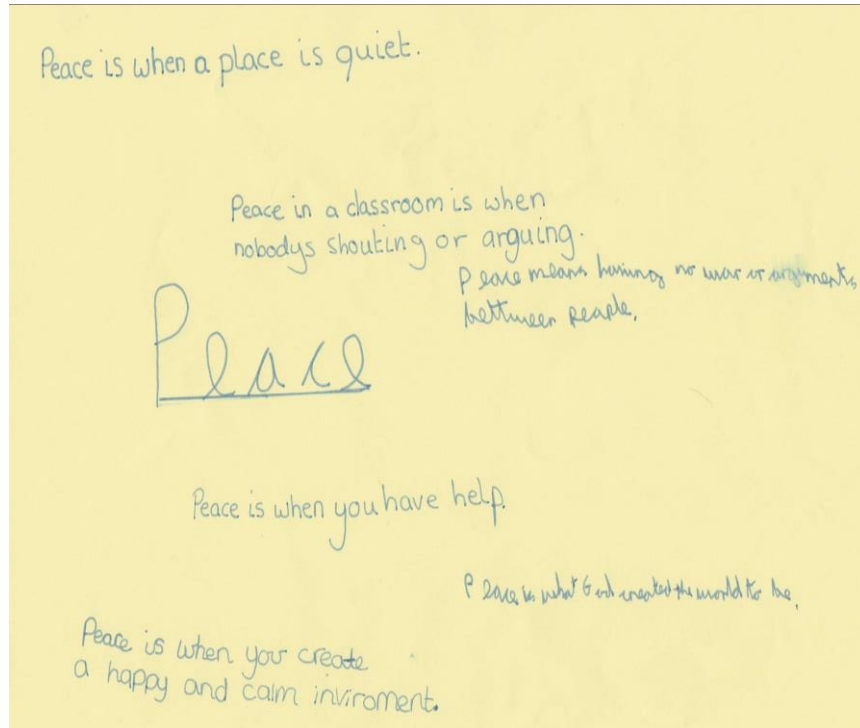 Peace is when a place is quiet.
Peace in a classroom is when
nobodys shouting or arguing.
Peace means having no war or arguments
bettween people.
Peace
Peace is when you have help.
Peace is what God created the world to be.
Peace is when you create
a happy and calm inviroment.